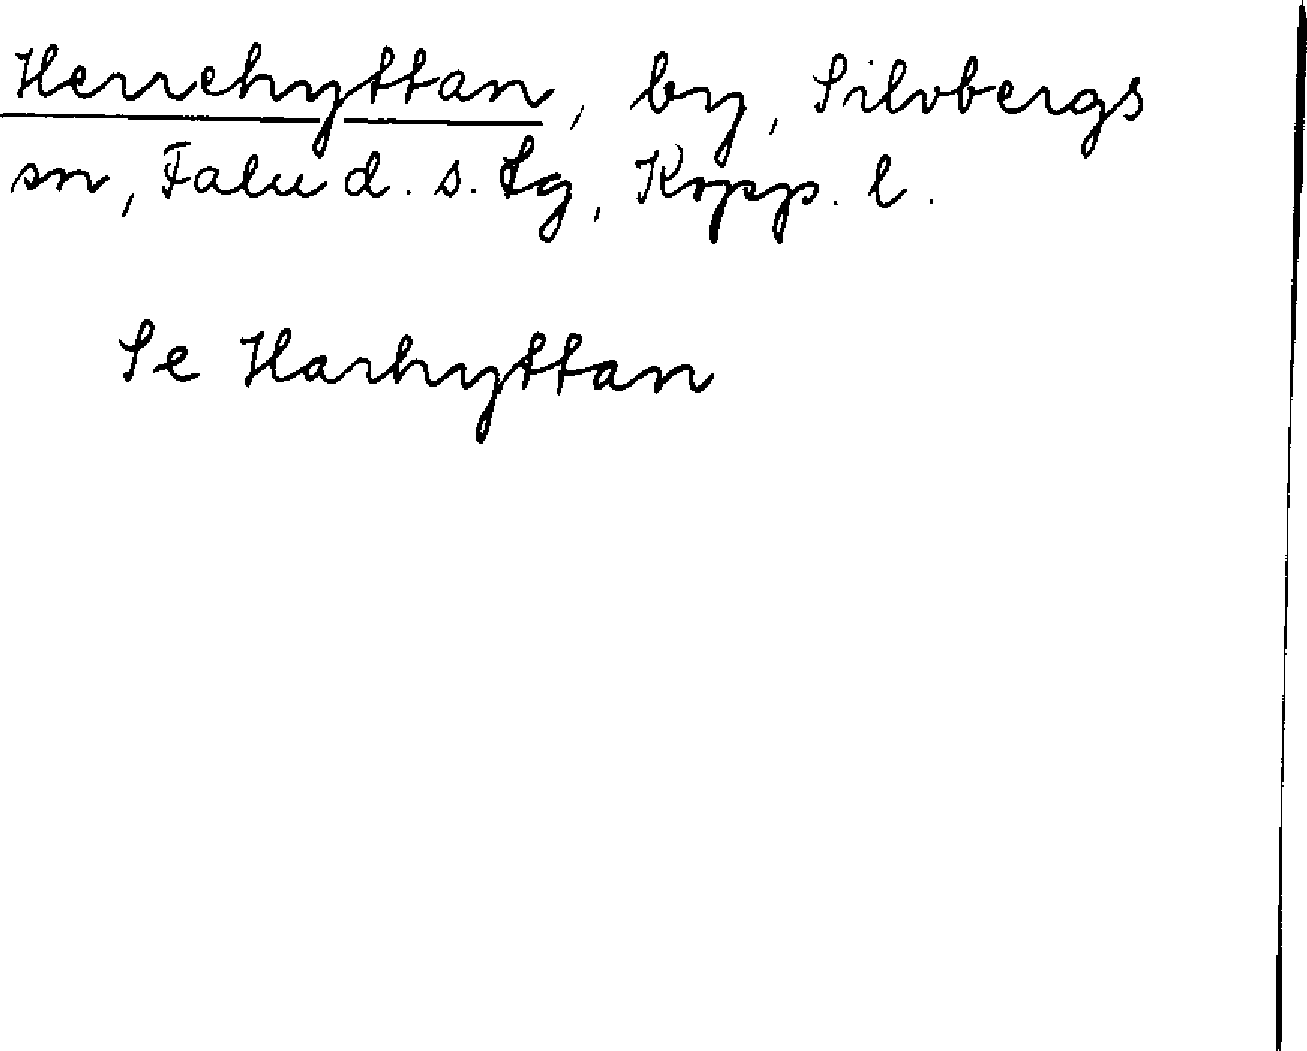 Herrehyttan, by, Silvbergs
sn, Falu d. s. tg, Kopp. l.
Se Harhyttan